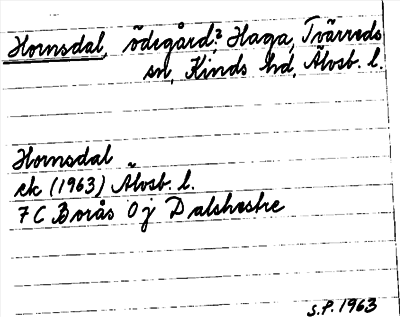 Hornsdal, ödegård? Haga, Tvärreds
sn, Kinds hd, Älvsb. l.
Hornsdal
ek (1963) Älvsb. l.
7 C Borås 0 j Dalshestre
S.P. 1963